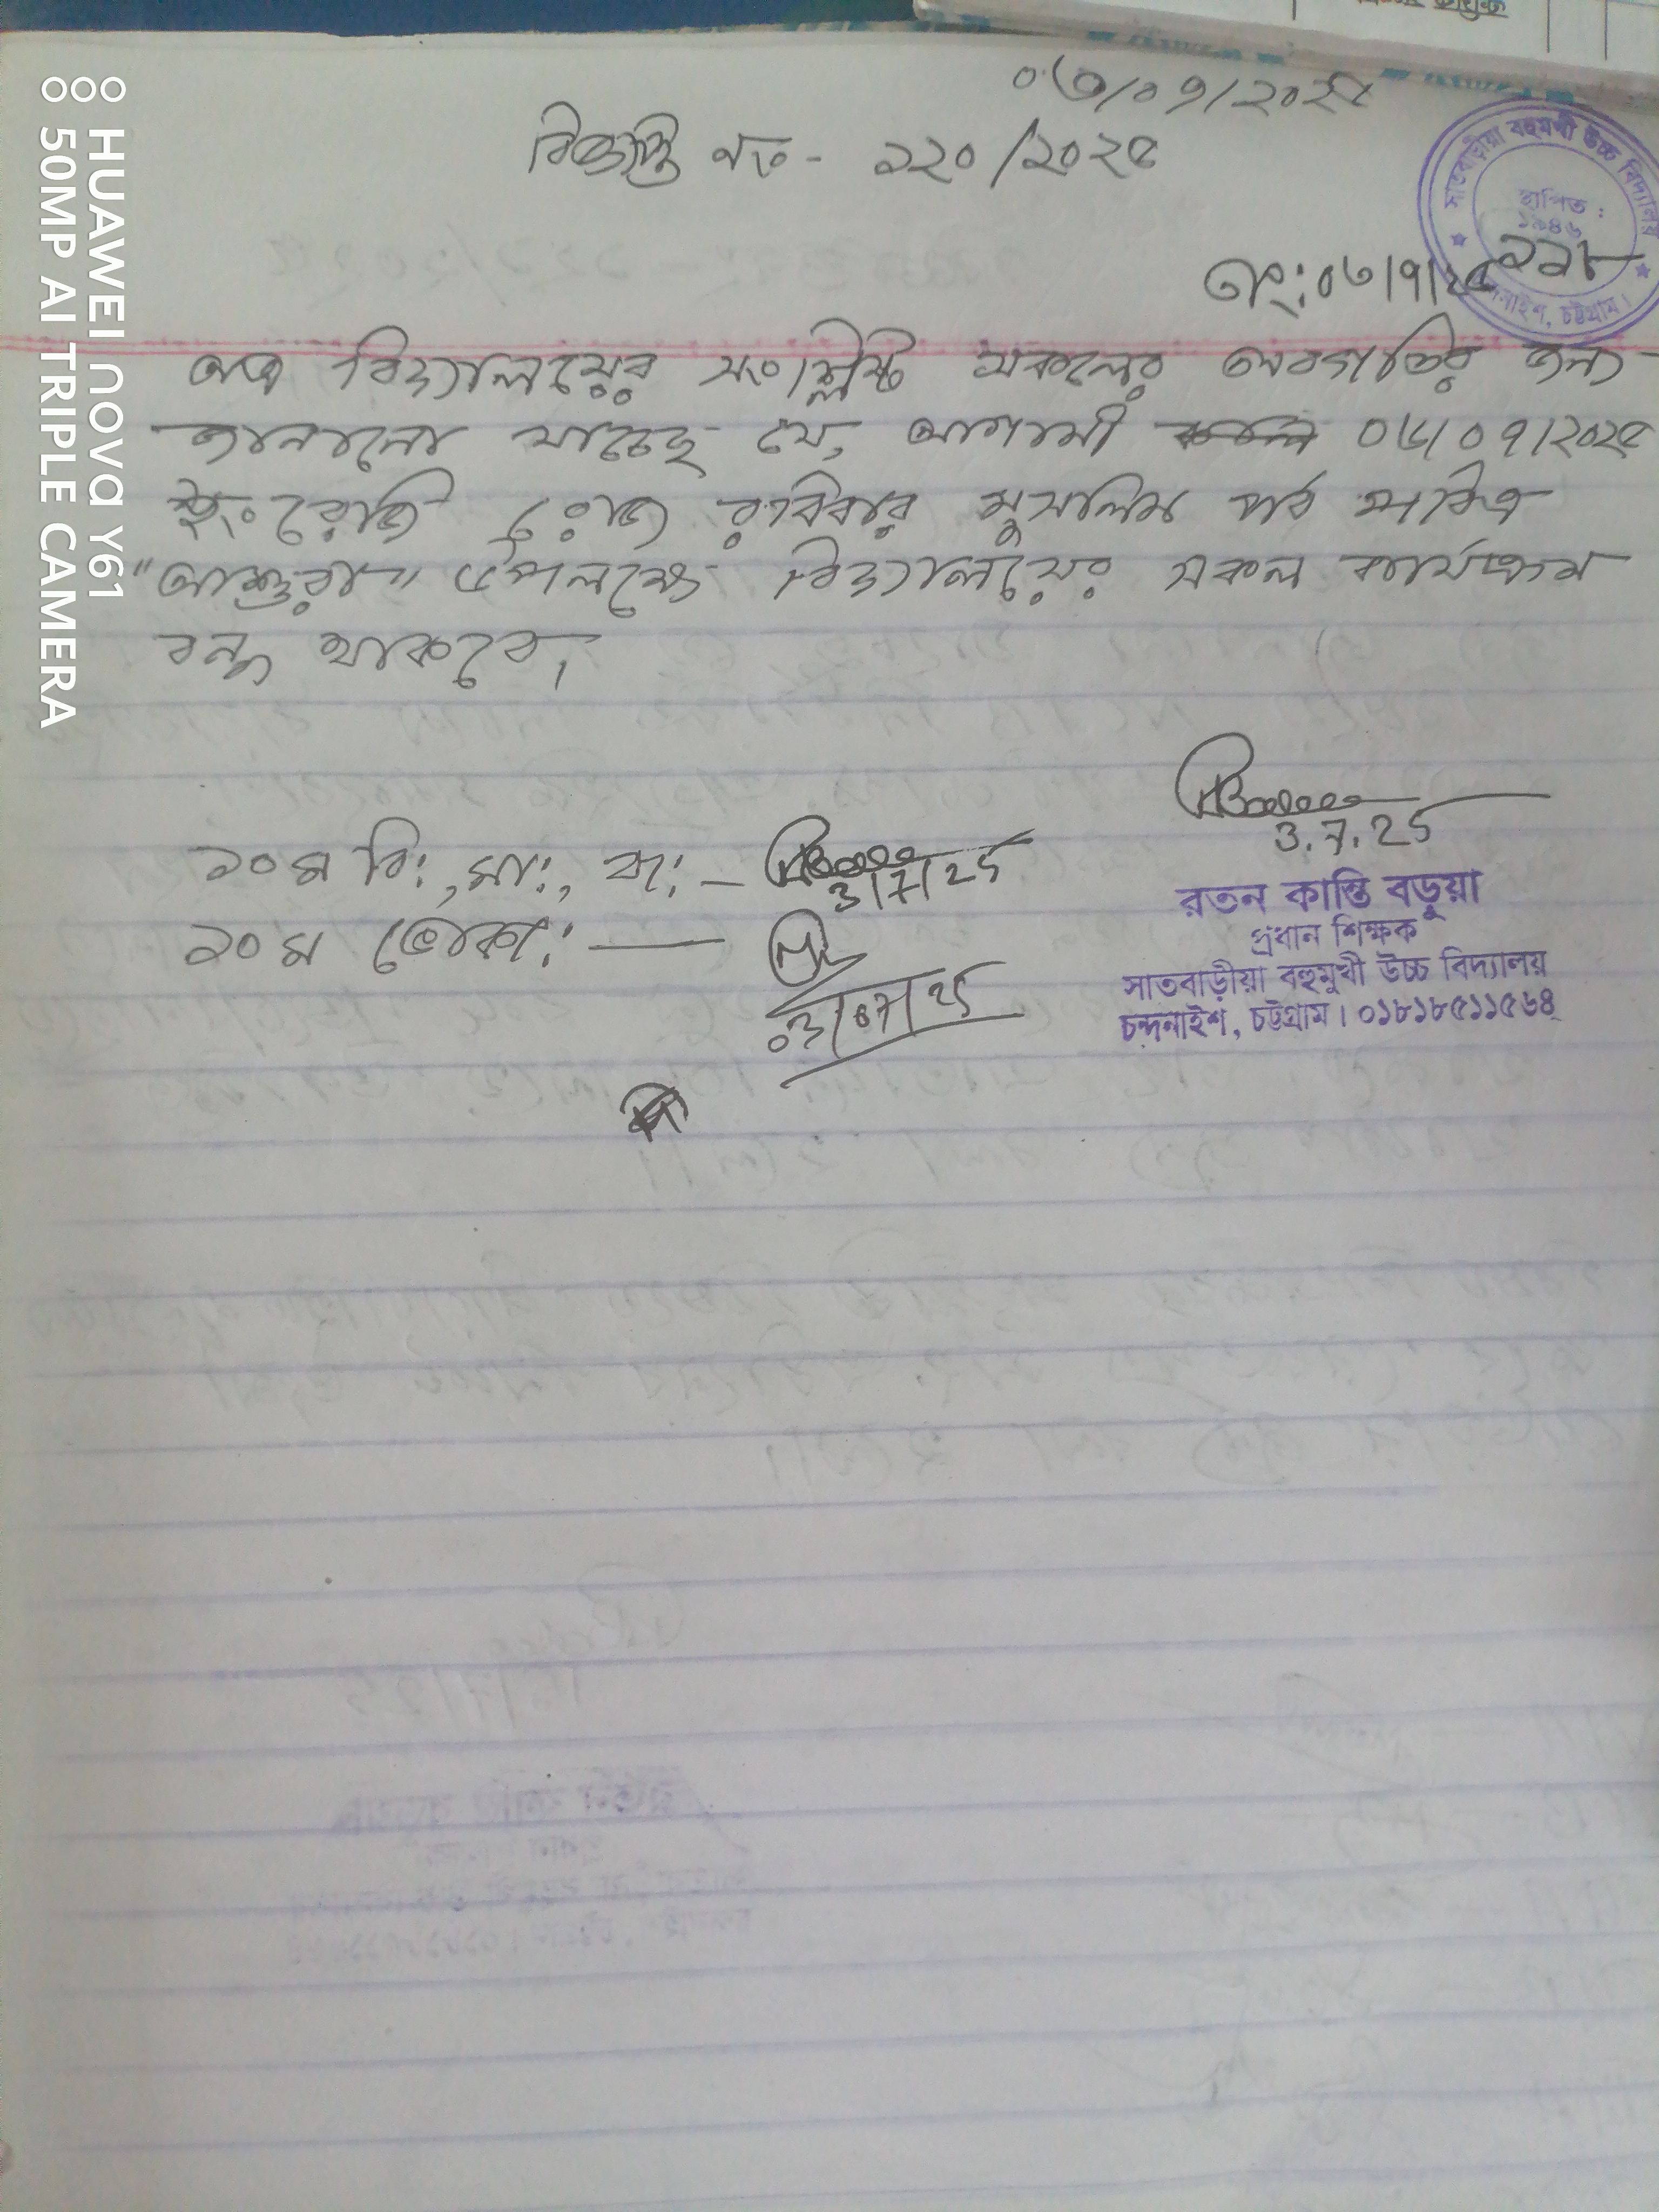 ০৩/০৭/২০২৫
বিজ্ঞপ্তি নং - ১২০/২০২৫
সাতবাড়ীয়া বহুমুখী উচ্চ বিদ্যালয়
স্থাপিত :
১৯৪৬
চন্দনাইশ, চট্টগ্রাম।
তাং: ০৩/৭/২৫
অত্র বিদ্যালয়ের সংশ্লিষ্ট সকলের অবগতির জন্য
জানানো যাচ্ছে যে, আগামী ০৬/০৭/২০২৫
ইংরেজি রোজ রবিবার মুসলিম পর্ব পবিত্র
"আশুরা" উপলক্ষে বিদ্যালয়ের সকল কার্যক্রম
বন্ধ থাকবে।
3.7.25
রতন কান্তি বড়ুয়া
প্রধান শিক্ষক
সাতবাড়ীয়া বহুমুখী উচ্চ বিদ্যালয়
চন্দনাইশ, চট্টগ্রাম। ০১৮১৮৫১১৫৬৪
১০ম বি:, মা:, ব্য: —
3/7/25
১০ম ভোকা: —
03/07/25
HUAWEI nova Y61
50MP AI TRIPLE CAMERA